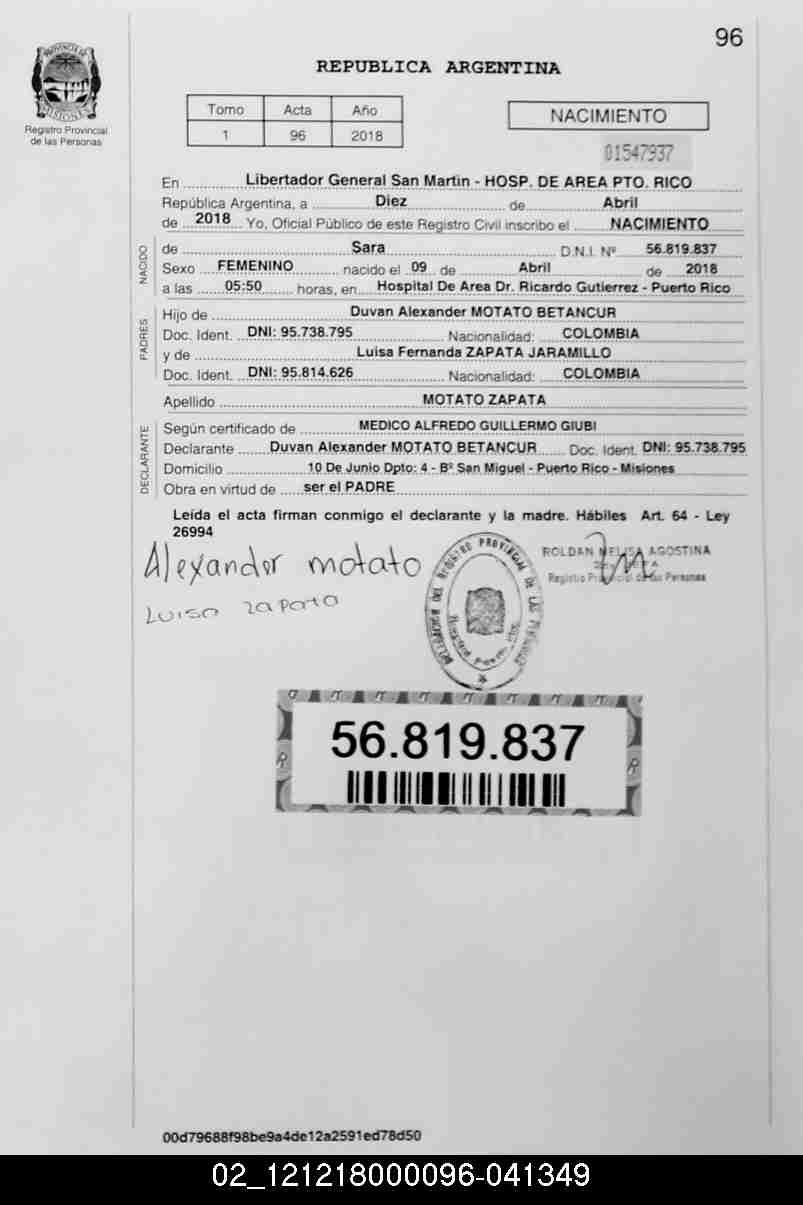 96
PROVINCIA DE
MISIONES
Registro Provincial
de las Personas
REPUBLICA ARGENTINA
Tomo Acta Año
1 96 2018
NACIMIENTO
01547937
En Libertador General San Martin - HOSP. DE AREA PTO. RICO
República Argentina, a Diez de Abril
de 2018 Yo, Oficial Público de este Registro Civil inscribo el NACIMIENTO
NACIDO
de Sara D.N.I. Nº 56.819.837
Sexo FEMENINO nacido el 09 de Abril de 2018
a las 05:50 horas, en Hospital De Area Dr. Ricardo Gutierrez - Puerto Rico
PADRES
Hijo de Duvan Alexander MOTATO BETANCUR
Doc. Ident. DNI: 95.738.795 Nacionalidad: COLOMBIA
y de Luisa Fernanda ZAPATA JARAMILLO
Doc. Ident. DNI: 95.814.626 Nacionalidad: COLOMBIA
Apellido MOTATO ZAPATA
DECLARANTE
Según certificado de MEDICO ALFREDO GUILLERMO GIUBI
Declarante Duvan Alexander MOTATO BETANCUR Doc. Ident. DNI: 95.738.795
Domicilio 10 De Junio Dpto: 4 - Bº San Miguel - Puerto Rico - Misiones
Obra en virtud de ser el PADRE
Leída el acta firman conmigo el declarante y la madre. Hábiles Art. 64 - Ley
26994
Alexander motato
Luisa zapata
ROLDAN MELISA AGOSTINA
Registro Provincial de las Personas
DELEGACION DEL REGISTRO PROVINCIAL DE LAS PERSONAS
56.819.837
00d79688f98be9a4de12a2591ed78d50
02_121218000096-041349